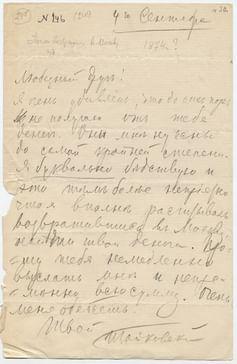 № 246
4го Сентября
1874?
Любезный друг!
Я очень удивлён, что до сих пор
я не получаю от тебя
денег. Они мне нужны
до самой крайней степени.
Я буквально бедствую и
это тем более
что я вполне рассчитывал
возвратившись в Москву,
найти твои деньги. Про-
шу тебя немедленно
выслать мне и непре-
менно всю сумму. Очень
меня обяжешь!
Твой
Чайковский